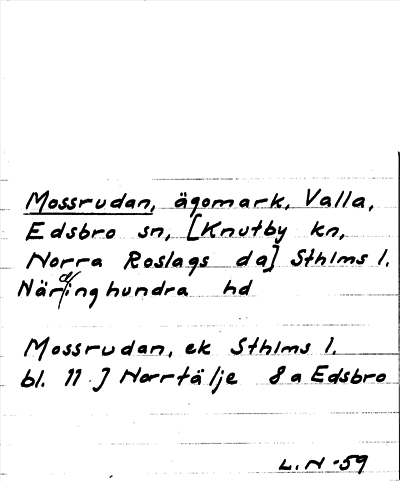 Mossrudan, ägomark, Valla,
Edsbro sn, [Knutby kn,
Norra Roslags da] Sthlms l.
Närdinghundra hd
Mossrudan, ek Sthlms l.
bl. 11 J Norrtälje 8a Edsbro
L.N -59